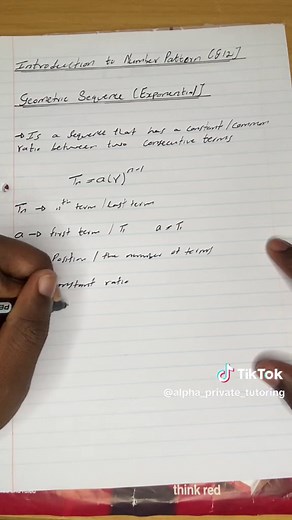 Introduction to Number Pattern [G12]
Geometric Sequence [Exponential]
→ Is a sequence that has a constant/common
ratio between two consecutive terms
Tn = a(r)^n-1
Tn → nth term / Last term
a → first term / T1 a = T1
Position / the number of terms
constant ratio
TikTok
@alpha_private_tutoring
think red